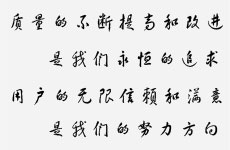 质量的不断提高和改进
是我们永恒的追求
用户的无限信赖和满意
是我们的努力方向